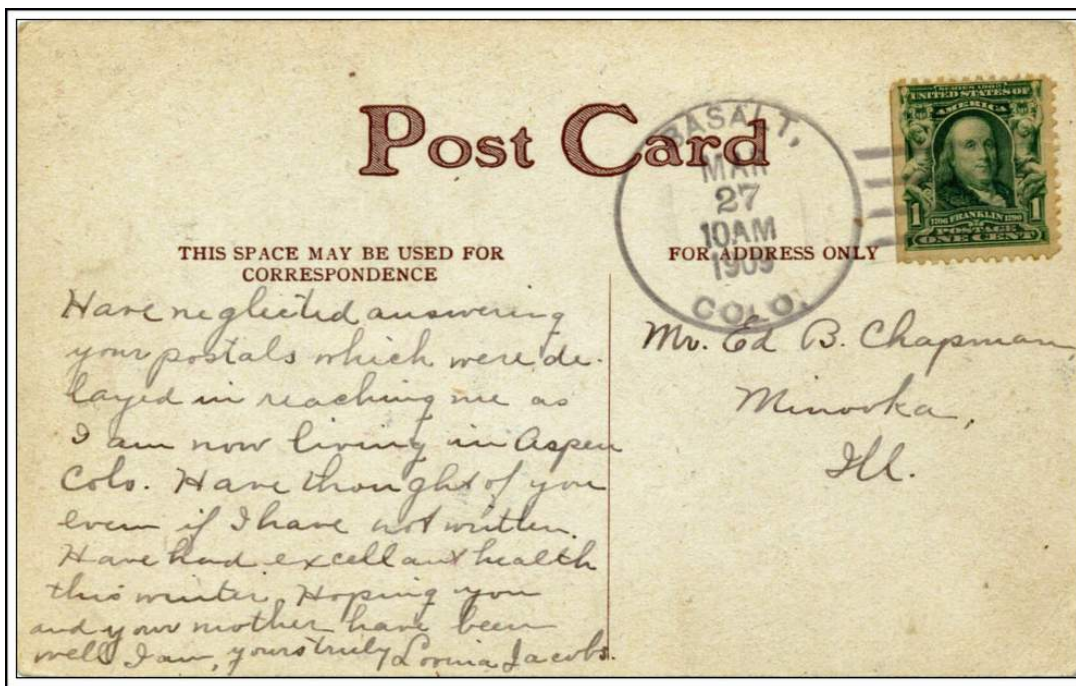 Post Card
BASALT,
MAR
27
10AM
1909
COLO.
SERIES 1902
UNITED STATES OF
AMERICA
1 1
1706 FRANKLIN 1790
POSTAGE
ONE CENT
THIS SPACE MAY BE USED FOR
CORRESPONDENCE
FOR ADDRESS ONLY
Have neglected answering
your postals which were de-
layed in reaching me as
I am now living in Aspen
Colo. Have thought of you
even if I have not written.
Have had excellant health
this winter. Hoping you
and your mother have been
well I am, yours truly Jacobs.
Mr. Ed B. Chapman,
Minooka,
Ill.